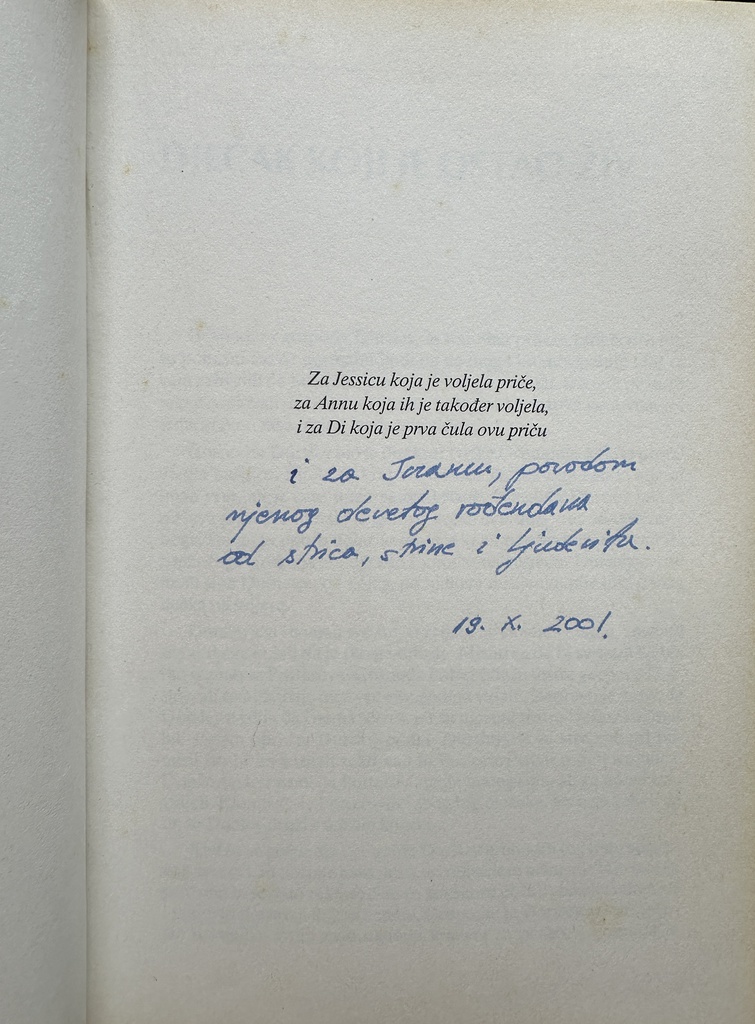 Za Jessicu koja je voljela priče,
za Annu koja ih je također voljela,
i za Di koja je prva čula ovu priču
i za Ivanu, povodom
njenog devetog rođendana
od strica, strine i Ljudevita.
19. X. 2001.